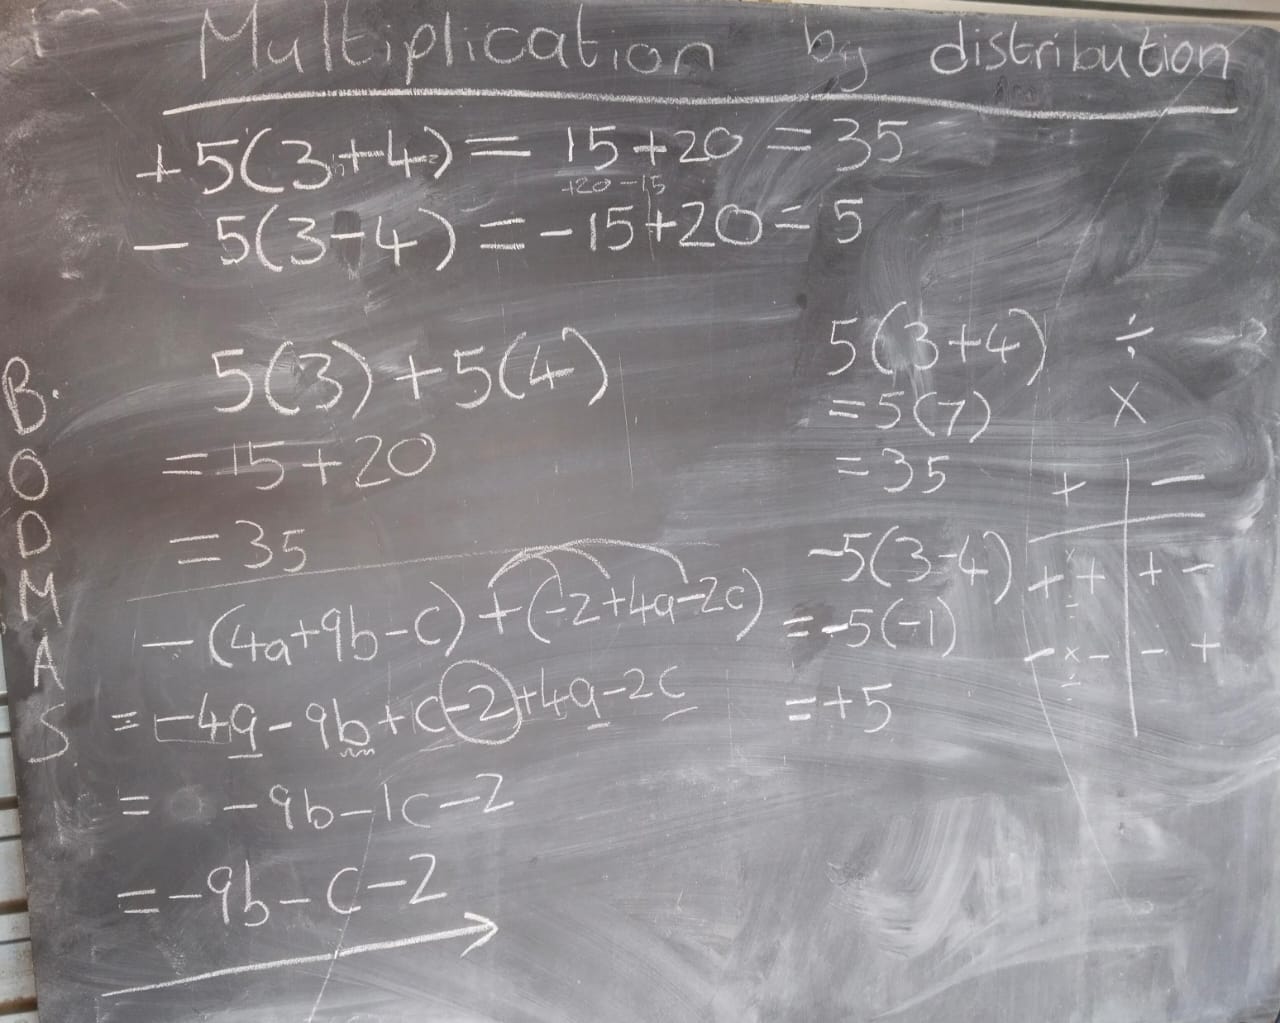 Multiplication by distribution
+5(3+4) = 15+20 = 35
+20-15
- 5(3-4) = -15+20 = 5
5(3)+5(4)
= 15+20
= 35
-(4a+9b-c)+(-2+4a-2c)
= -4a-9b+c-2+4a-2c
= -9b-1c-2
= -9b-c-2
B.
O
D
M
A
S
5(3+4)
= 5(7)
= 35
-5(3-4)
= -5(-1)
= +5
÷
×
+ | -
+ × + | + -
÷
- × - | - +
÷